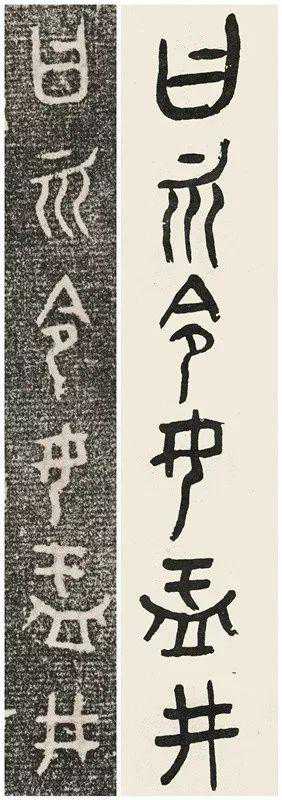 曰而令女盂井
曰而令女盂井